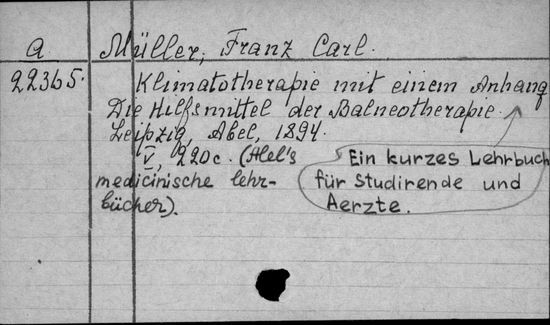 a Müller, Franz Carl.
22365. Klimatotherapie mit einem Anhang
Die Hilfsmittel der Balneotherapie.
Leipzig, Abel, 1894.
V, 220 c. (Abel's
medicinische lehr-
bücher).
Ein kurzes Lehrbuch
für Studirende und
Aerzte.